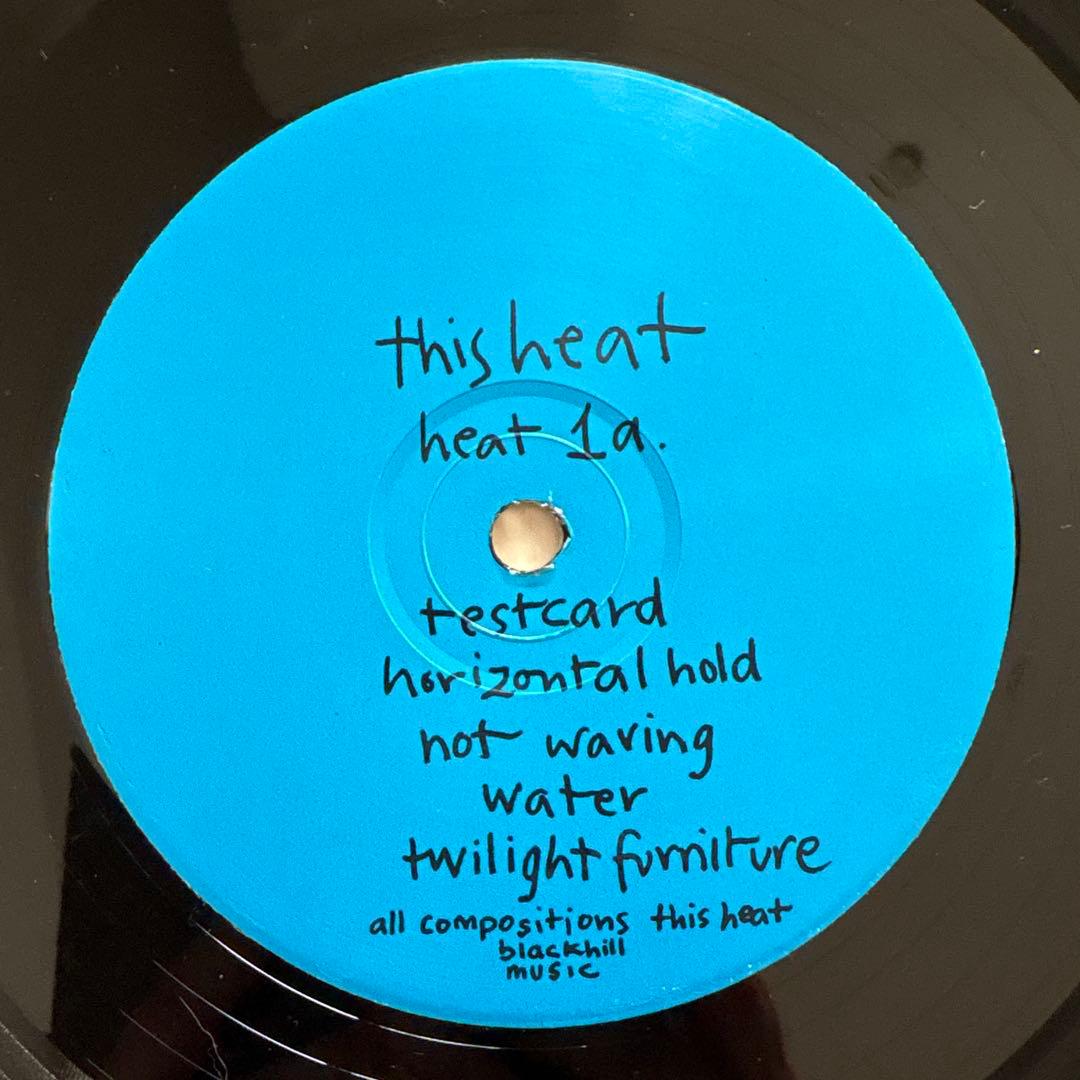 this heat
heat 1a.
testcard
horizontal hold
not waving
water
twilight furniture
all compositions this heat
blackhill
music